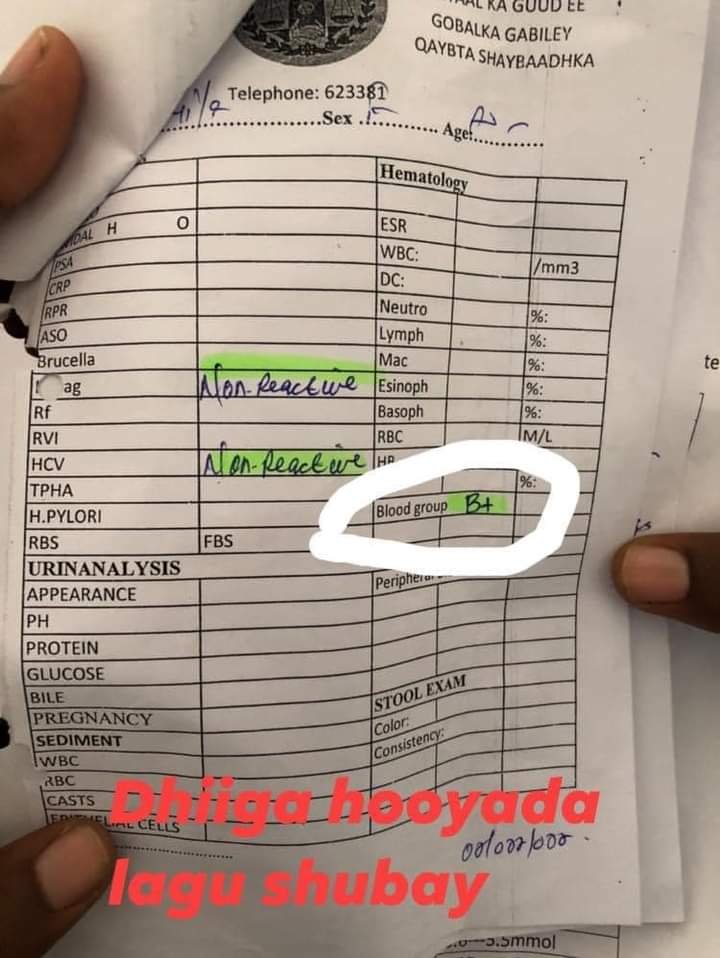 KA GUUD EE
GOBALKA GABILEY
QAYBTA SHAYBAADHKA
Telephone: 623381
Sex Age:
Hematology
H O
PSA
ESR
CRP
WBC: /mm3
RPR
DC:
ASO
Neutro %:
Brucella
Lymph %:
Mac %:
ag Non-Reactive
Esinoph %:
Rf
Basoph %:
RVI
RBC M/L
HCV Non-Reactive
%:
TPHA
Blood group B+
H.PYLORI
RBS FBS
URINANALYSIS
APPEARANCE
PH
PROTEIN
GLUCOSE
BILE
STOOL EXAM
PREGNANCY
Color:
SEDIMENT
Consistency:
WBC
RBC
CASTS
CELLS
Dhiiga hooyada
lagu shubay
5.5mmol